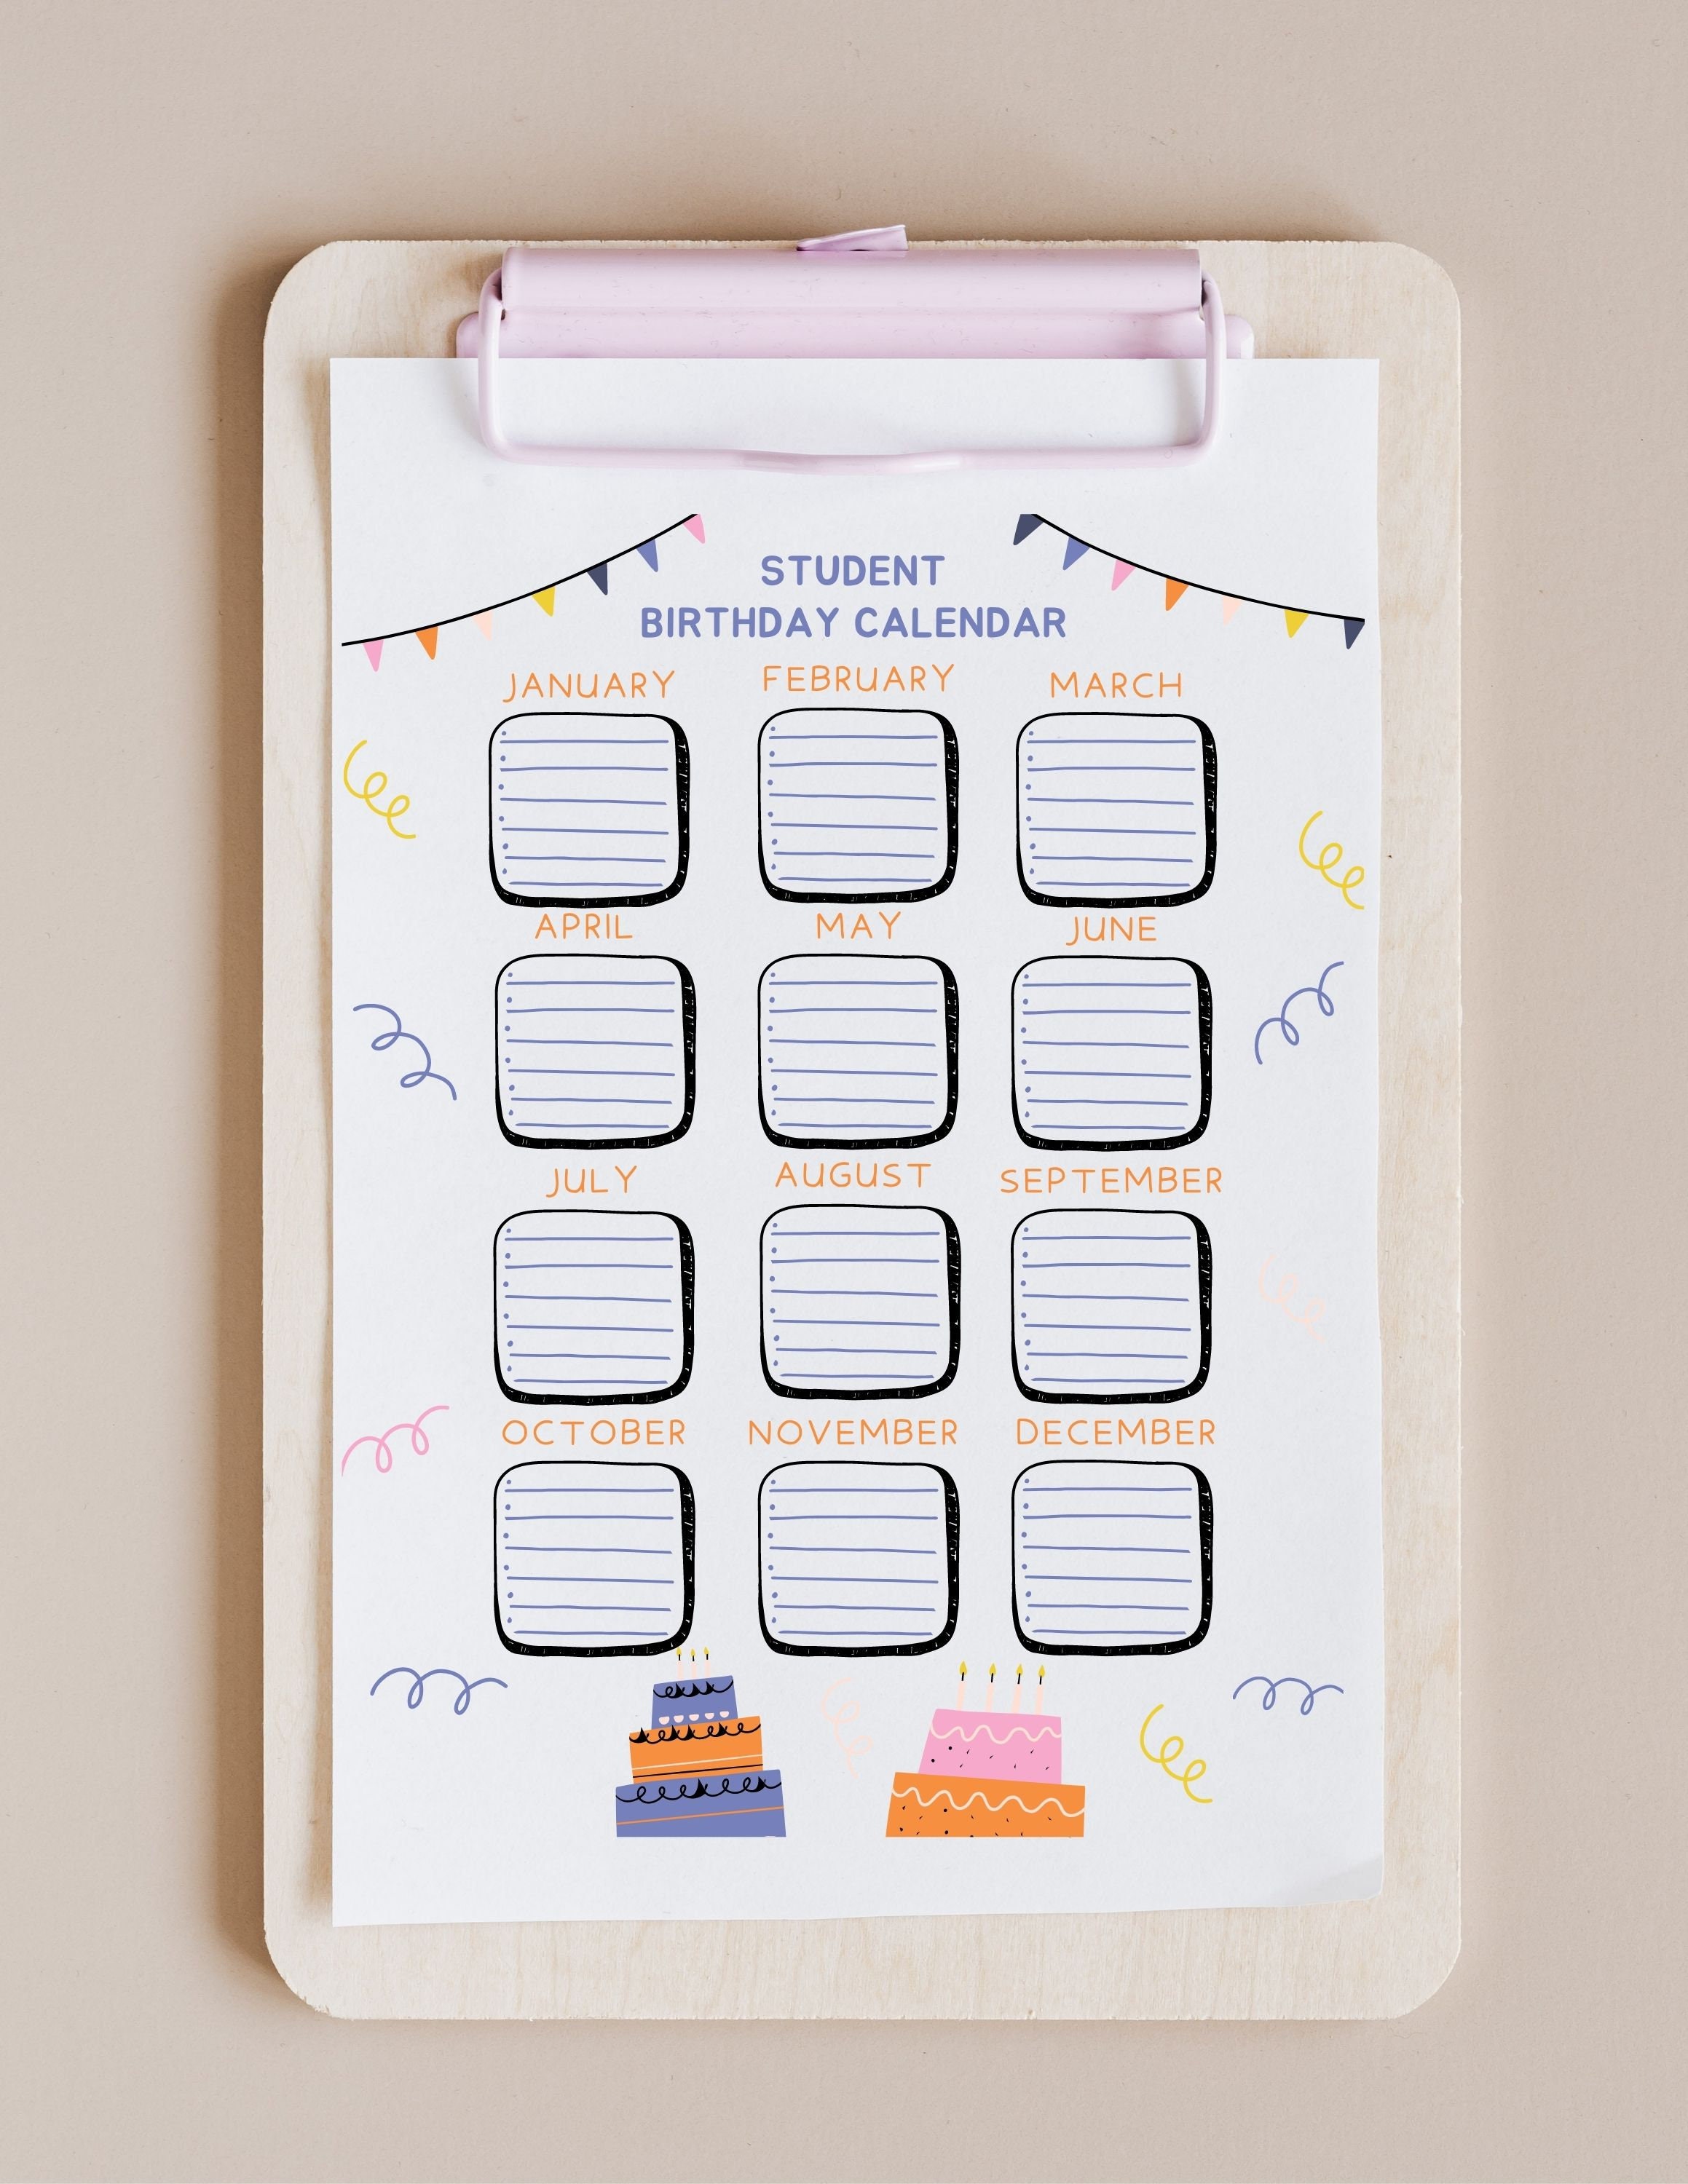 STUDENT
BIRTHDAY CALENDAR
JANUARY FEBRUARY MARCH
APRIL MAY JUNE
JULY AUGUST SEPTEMBER
OCTOBER NOVEMBER DECEMBER